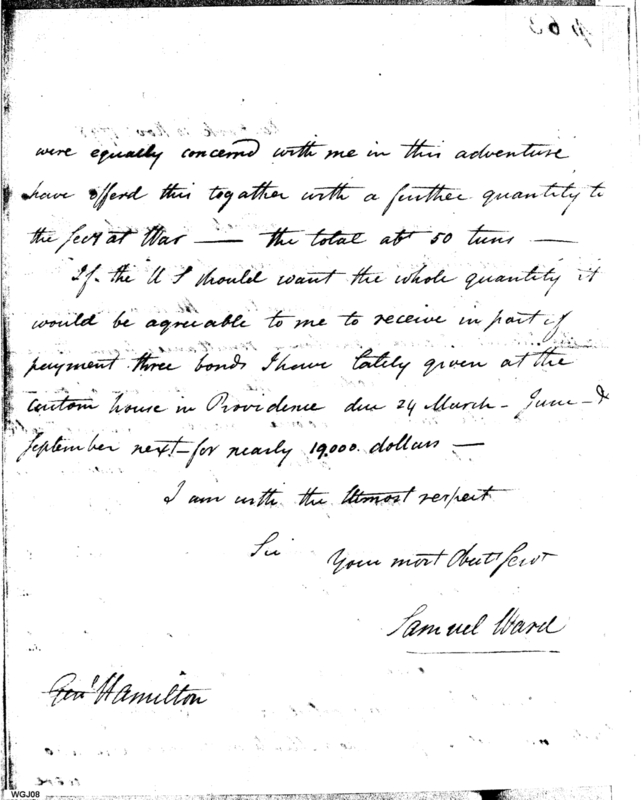 p 63
were equally concernd with me in this adventure
have offerd this together with a further quantity to
the Secy at War — the total abt 50 tuns —
If the U S should want the whole quantity it
would be agreeable to me to receive in part of
payment three bonds I have lately given at the
custom house in Providence due 24 March - June - &
September next - for nearly 19.000. dollars —
I am with the Utmost respect
Sir
Your most Obedt Servt
Samuel Ward
Genl Hamilton
WGJ08